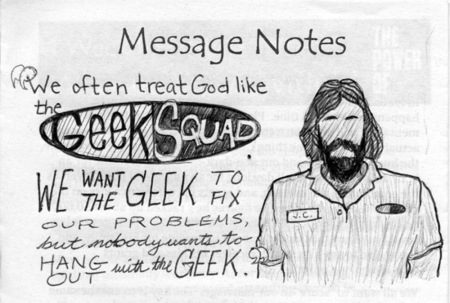 Message Notes
"We often treat God like
the
Geek Squad.
WE WANT
THE GEEK TO
FIX
OUR PROBLEMS,
but nobody wants to
HANG
OUT with the GEEK."
J.C.